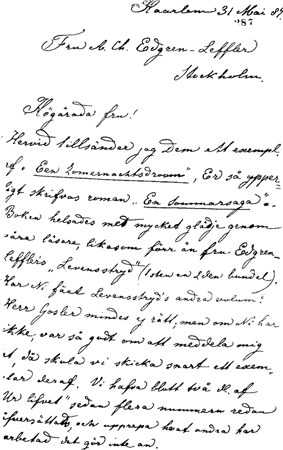 Haarlem 31 Mai 87.
287
Fru A. Ch. Edgren-Leffler
Stockholm.
Högärada fru!
Hervid tillsänder jag Dem ett exempl.
af "Een Zomernachtsdroom", Er så ypper-
ligt skrifvas roman "En sommarsaga".
Boken helsades med mycket glädje genom
våre läsare, likasom förr än fru Edgren-
Lefflers "Levensstryd" (1sten en 2den bundel).
Har Ni fået Levensstryd's andra volum?
Herr Gosler mindes ej rätt, men om Ni har
ikke, var så godt om att meddela mig
det, då skola vi skicka snart ett exem-
plar deraf. Vi hafva blutt två dl. af
"Ur lifvet" sedan flera nummern redan
öfversättad, och upprepa hvat andra har
arbetad det gör inte an.